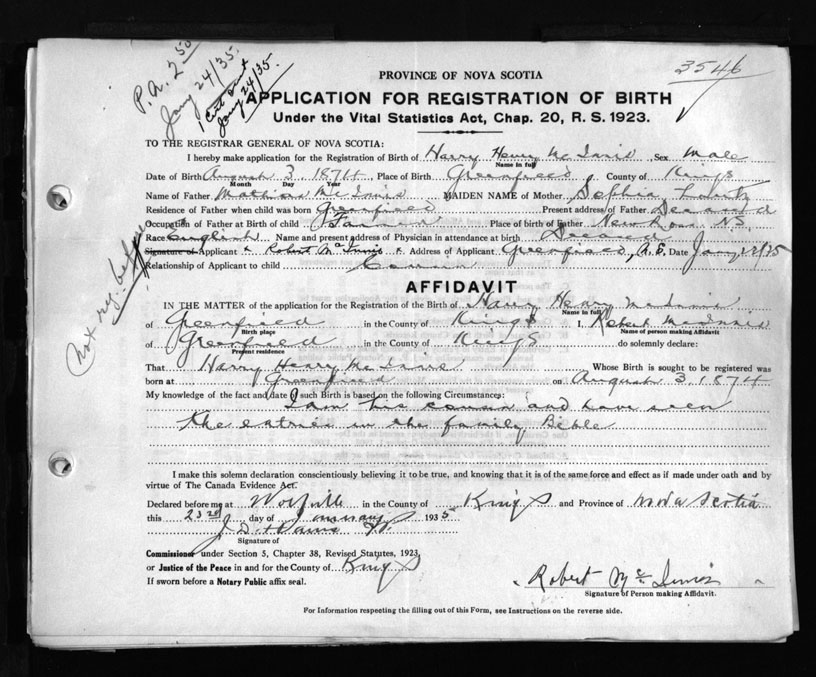 P.A. 2.50
Jany 24/35.
1 Cert sent
Jany 24/35.
3546
PROVINCE OF NOVA SCOTIA
APPLICATION FOR REGISTRATION OF BIRTH
Under the Vital Statistics Act, Chap. 20, R. S. 1923.
TO THE REGISTRAR GENERAL OF NOVA SCOTIA:
I hereby make application for the Registration of Birth of Harry Henry McInnis Sex Male
Name in full
Date of Birth August 3, 1874 Place of Birth Greenfield County of Kings
Month Day Year
Name of Father McInnis MAIDEN NAME of Mother Sophia
Residence of Father when child was born Greenfield Present address of Father Deceased
Occupation of Father at Birth of child Farmer Place of birth of Father New Ross N.S.
Race English Name and present address of Physician in attendance at birth Deceased
Signature of Applicant x Robert McInnis x Address of Applicant Greenfield, N.S. Date Jany /35
Relationship of Applicant to child Cousin
not reg. before
AFFIDAVIT
IN THE MATTER of the application for the Registration of the Birth of Harry Henry McInnis
Name in full
of Greenfield in the County of Kings I, Robert McInnis
Birth place Name of person making Affidavit
of Greenfield in the County of Kings do solemnly declare:
Present residence
That Harry Henry McInnis Whose Birth is sought to be registered was
born at Greenfield on August 3, 1874
My knowledge of the fact and date of such Birth is based on the following Circumstances:
I am his cousin and have seen
the entries in the family Bible
I make this solemn declaration conscientiously believing it to be true, and knowing that it is of the same force and effect as if made under oath and by
virtue of The Canada Evidence Act.
Declared before me at Wolfville in the County of Kings and Province of Nova Scotia
this 23rd day of January 1935
Signature of
Commissioner under Section 5, Chapter 38, Revised Statutes, 1923,
or Justice of the Peace in and for the County of Kings
If sworn before a Notary Public affix seal.
Robert McInnis
Signature of Person making Affidavit.
For Information respecting the filling out of this Form, see Instructions on the reverse side.